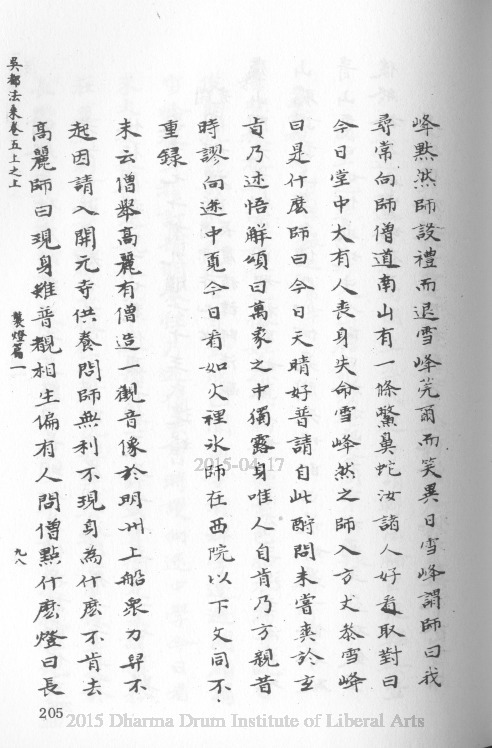 峰默然師設禮而退雪峰莞爾而笑異日雪峰謂師曰我
尋常向師僧道南山有一條鱉鼻蛇汝諸人好看取對曰
今日堂中大有人喪身失命雪峰然之師入方丈參雪峰
曰是什麼師曰今日天晴好普請自此酧問未嘗爽於玄
旨乃述悟解頌曰萬象之中獨露身唯人自肯乃方親昔
時謬向途中覓今日看如火裡氷師在西院以下文同不
重録
末云僧舉高麗有僧造一觀音像於明州上船衆力舁不
起因請入開元寺供養問師無刹不現身為什麽不肯去
高麗師曰現身雖普覩相生偏有人問僧點什麽燈曰長
吳都法乘卷五上之上
製燈篇一
九八
205
2015-04-17
2015 Dharma Drum Institute of Liberal Arts